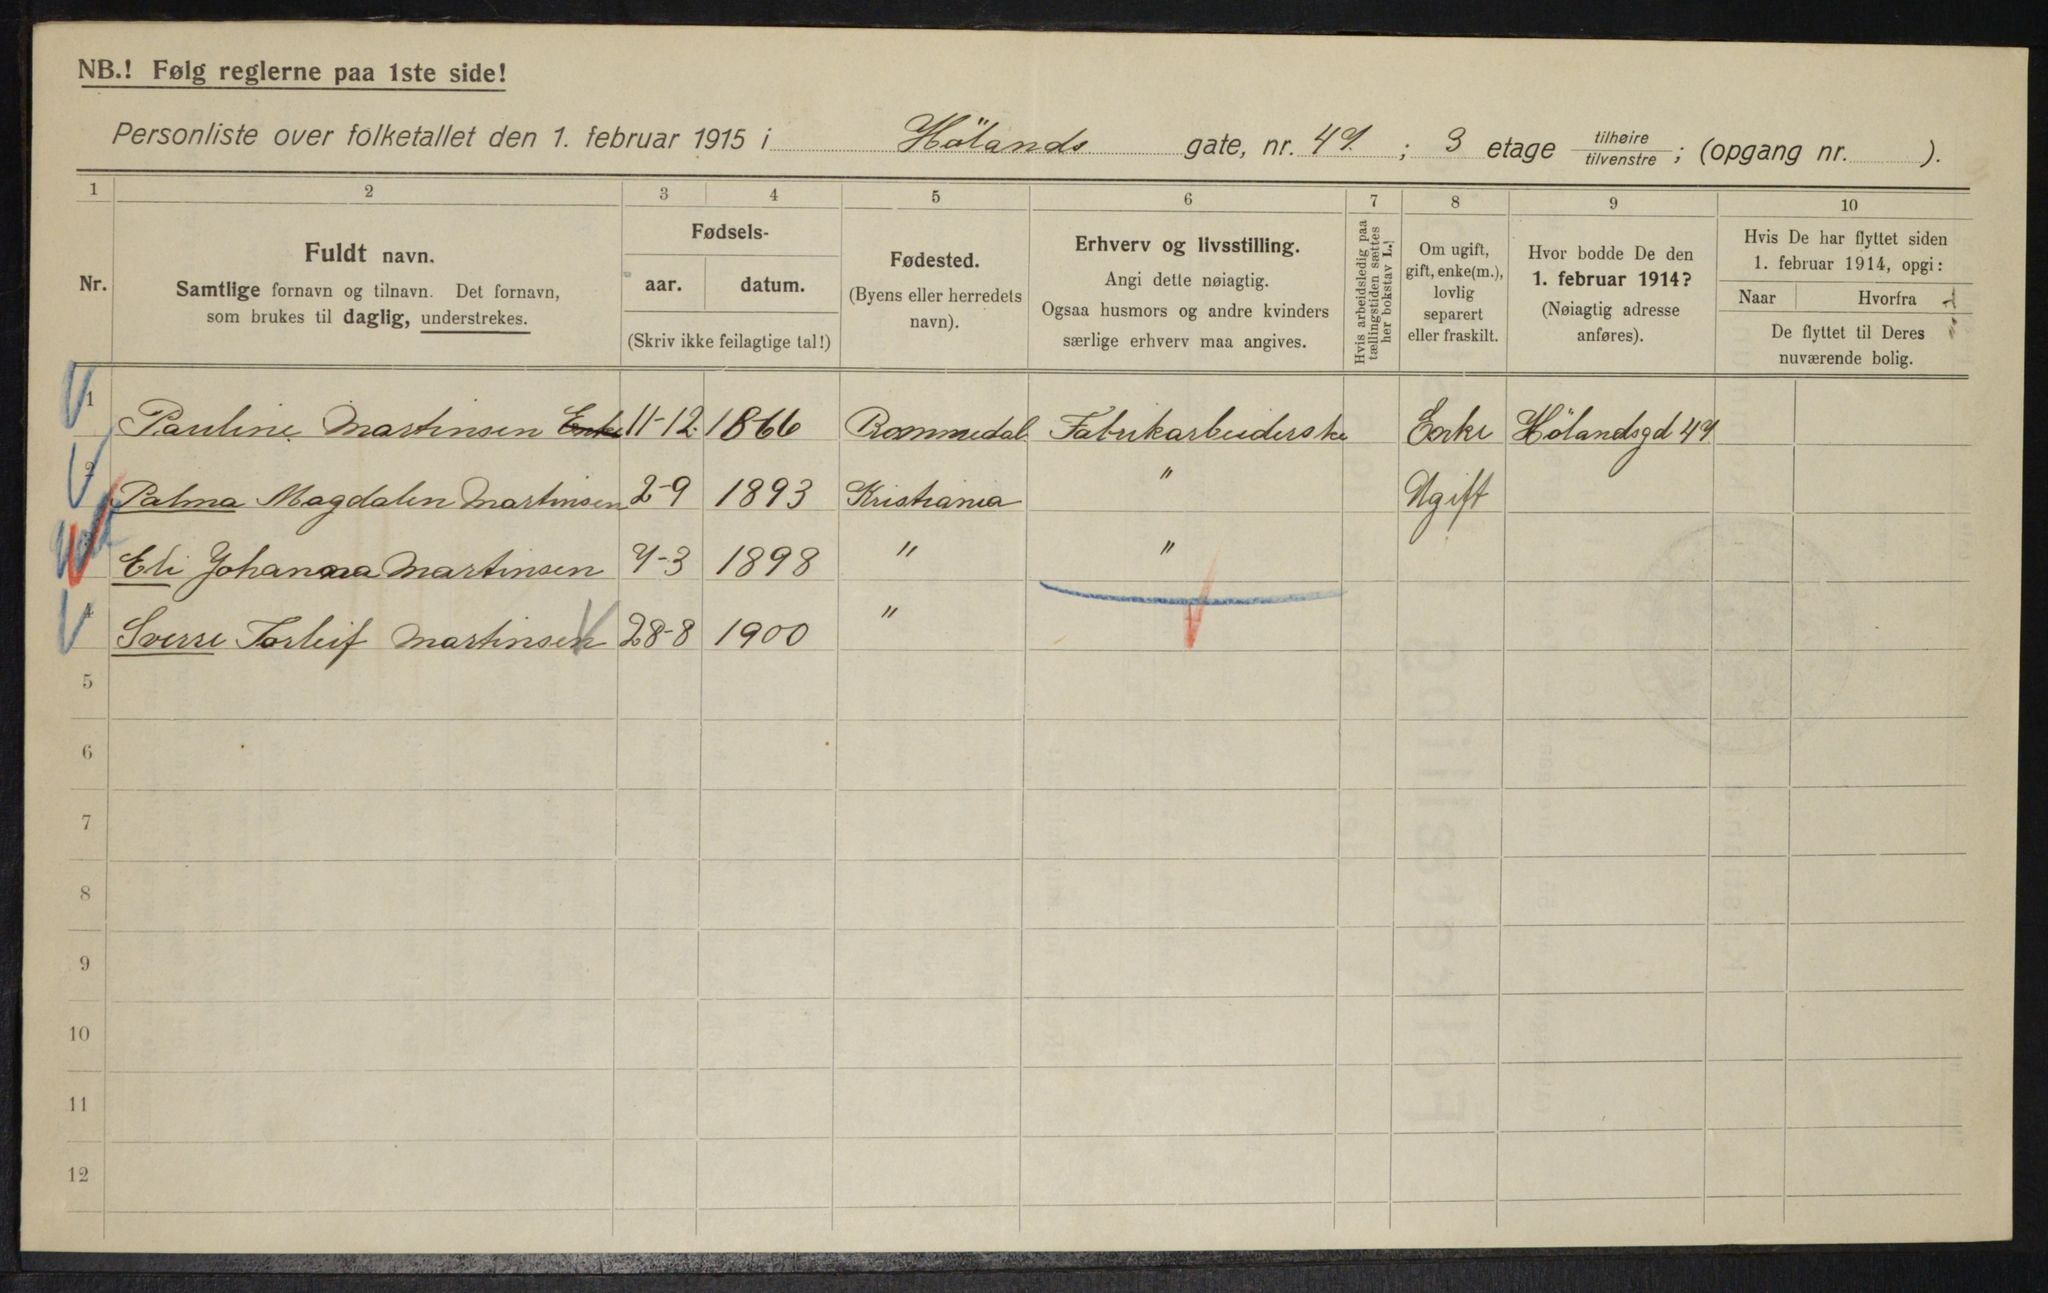 NB.! Følg reglerne paa 1ste side!
Personliste over folketallet den 1. februar 1915 i Hölands gate, nr. 49. ; 3 etage tilhøire / tilvenstre ; (opgang nr. ).
1 2 3 4 5 6 7 8 9 10
Nr.
Fuldt navn.
Samtlige fornavn og tilnavn. Det fornavn,
som brukes til daglig, understrekes.
Fødsels-
aar. datum.
(Skriv ikke feilagtige tal!)
Fødested.
(Byens eller herredets
navn).
Erhverv og livsstilling.
Angi dette nøiagtig.
Ogsaa husmors og andre kvinders
særlige erhverv maa angives.
Hvis arbeidsledig paa
tællingstiden sættes
her bokstav L.!
Om ugift,
gift, enke(m.),
lovlig
separert
eller fraskilt.
Hvor bodde De den
1. februar 1914?
(Nøiagtig adresse
anføres).
Hvis De har flyttet siden
1. februar 1914, opgi:
Naar Hvorfra
De flyttet til Deres
nuværende bolig.
1 Pauline Martinsen Enke 11-12. 1866 Rommedal Fabrikarbeiderske Enke Hölandsgd 49
2 Palma Magdalen Martinsen 2-9 1893 Kristiania " Ugift
Eli Johanna Martinsen 9-3 1898 " "
4 Sverre Torleif Martinsen 28-8 1900 "
5
6
7
8
9
10
11
12